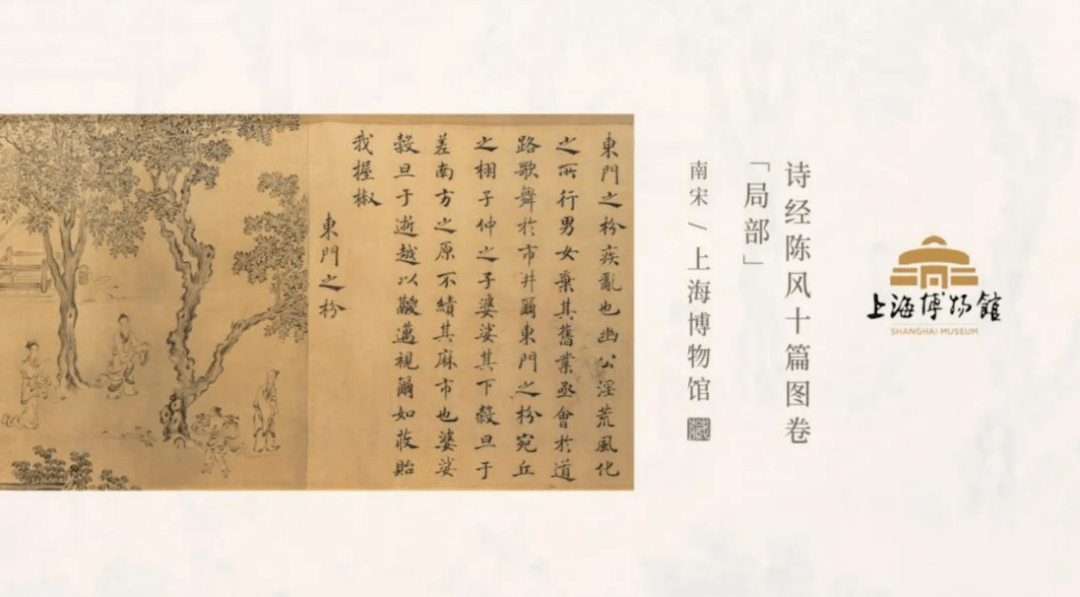 上海博物館
SHANGHAI MUSEUM
诗经陈风十篇图卷
「局部」
南宋 / 上海博物馆
東門之枌疾亂也幽公淫荒風化
之所行男女棄其舊業亟會於道
路歌舞於市井爾東門之枌宛丘
之栩子仲之子婆娑其下穀旦于
差南方之原不績其麻市也婆娑
穀旦于逝越以鬷邁視爾如荍貽
我握椒
東門之枌